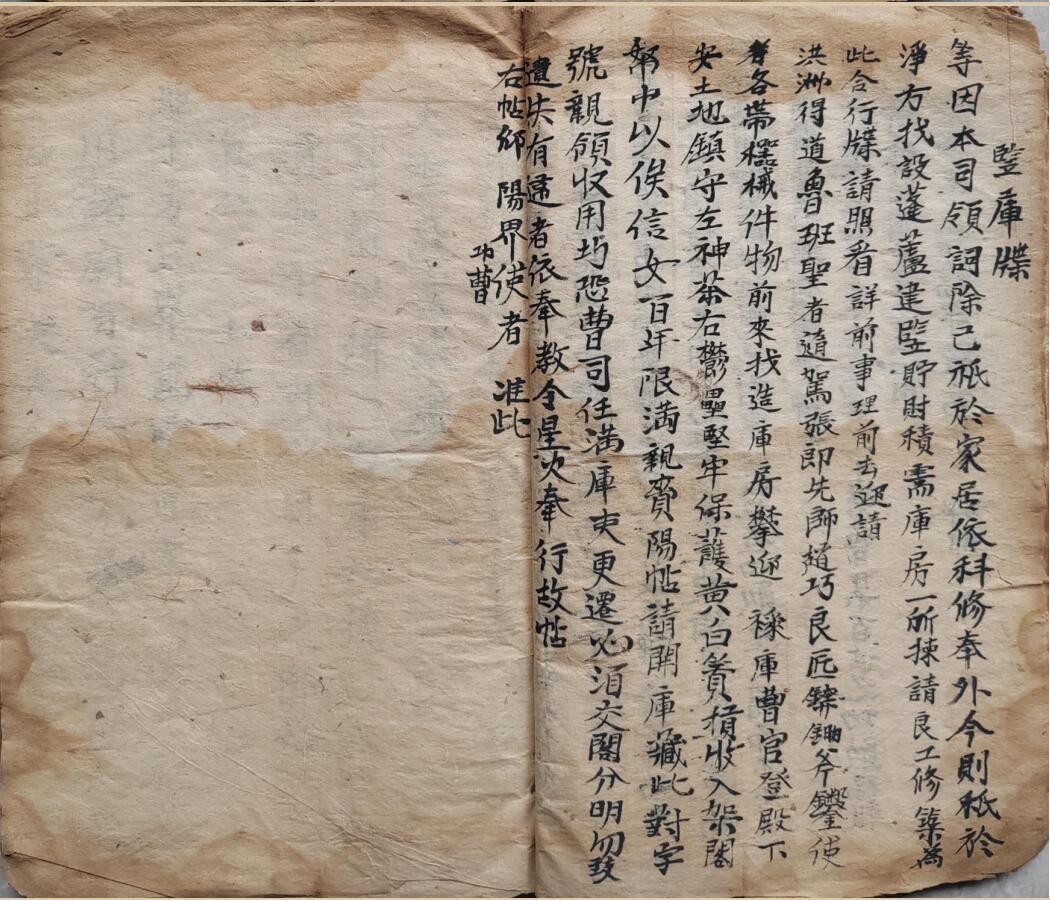 竪庫牒
等因本司領詞除已祇於家居依科修奉外今則祇於
淨方找設蓬蘆建竪貯財積需庫房一所揀請良工修築為
此合行牒請照看詳前事理前去迎請
洪洲得道魯班聖者隨駕張郎先師趙巧良匠鎵鋤斧鑿使
者各帶檑械件物前來找造庫房攀迎 祿庫曹官登殿下
安土地鎮守左神荼右鬱壘堅牢保護黄白簀積收入架閣
帑中以俟信女百年限满親賫陽帖請開庫藏比對字
號親領收用巧恐曹司任满庫吏更遷必須交閣分明勿致
遺失有違者依奉教令星火奉行故帖
右帖仰 陽界使者 准此
功曹